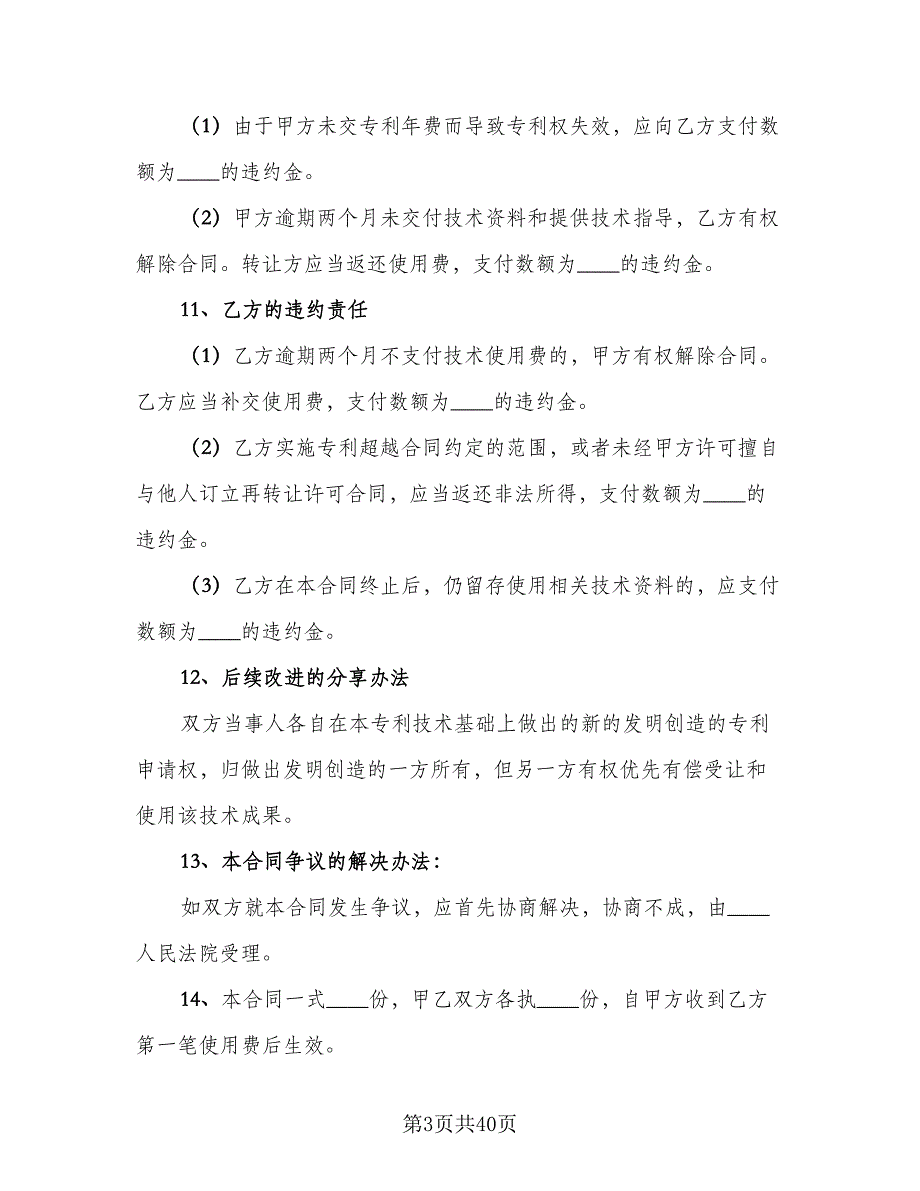 （1）由于甲方未交专利年费而导致专利权失效，应向乙方支付数
额为____的违约金。
（2）甲方逾期两个月未交付技术资料和提供技术指导，乙方有权
解除合同。转让方应当返还使用费，支付数额为____的违约金。
11、乙方的违约责任
（1）乙方逾期两个月不支付技术使用费的，甲方有权解除合同。
乙方应当补交使用费，支付数额为____的违约金。
（2）乙方实施专利超越合同约定的范围，或者未经甲方许可擅自
与他人订立再转让许可合同，应当返还非法所得，支付数额为____的
违约金。
（3）乙方在本合同终止后，仍留存使用相关技术资料的，应支付
数额为____的违约金。
12、后续改进的分享办法
双方当事人各自在本专利技术基础上做出的新的发明创造的专利
申请权，归做出发明创造的一方所有，但另一方有权优先有偿受让和
使用该技术成果。
13、本合同争议的解决办法：
如双方就本合同发生争议，应首先协商解决，协商不成，由____
人民法院受理。
14、本合同一式____份，甲乙双方各执____份，自甲方收到乙方
第一笔使用费后生效。
第3页共40页